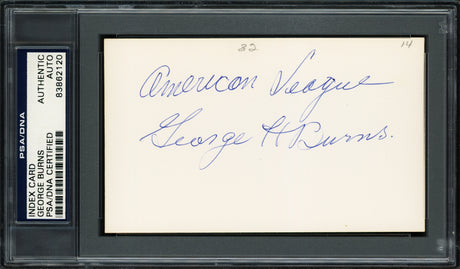 PSA/DNA
INDEX CARD
GEORGE BURNS
PSA/DNA CERTIFIED
AUTHENTIC
AUTO
83862120
32
14
American League
George H Burns.